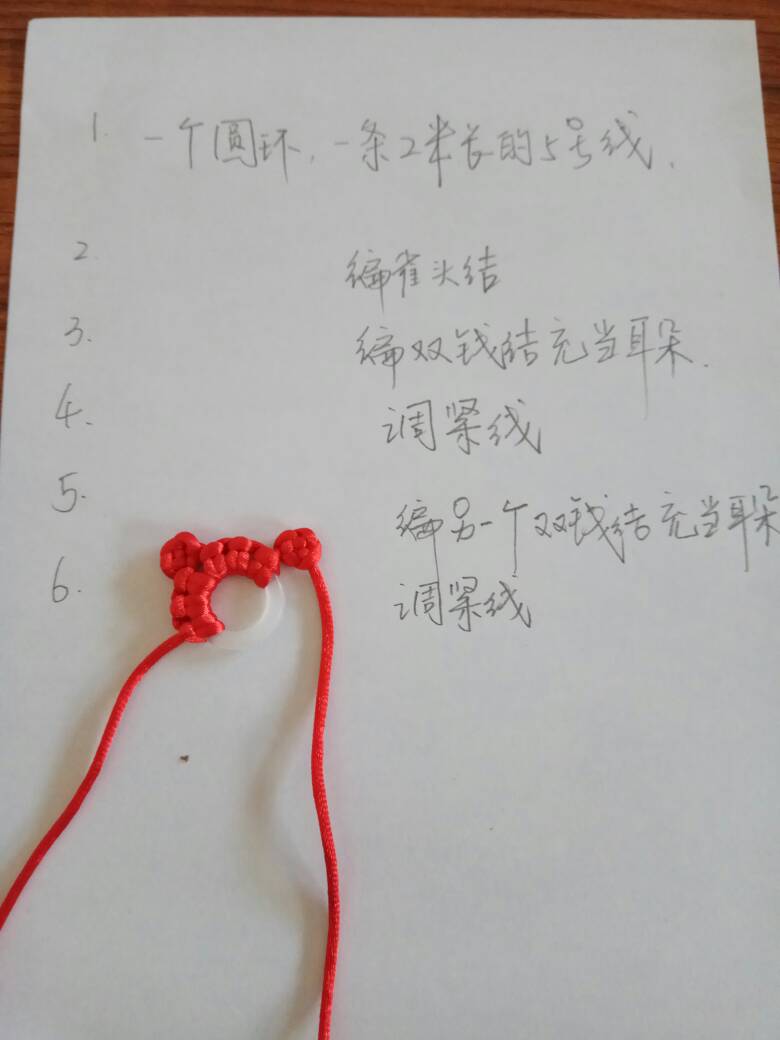 1. 一个圆环, 一条2米长的5号线.
2. 编雀头结
3. 编双钱结充当耳朵.
4. 调紧线
5. 编另一个双钱结充当耳朵
6. 调紧线